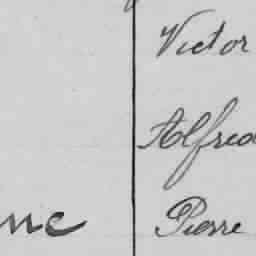 Victor
Alfred
Pierre